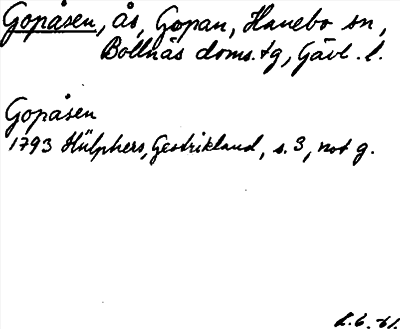 Gopåsen, ås, Gopan, Hanebo sn,
Bollnäs doms.tg, Gävl. l.
Gopåsen
1793 Hülphers, Gestrikland, s. 3, not g.